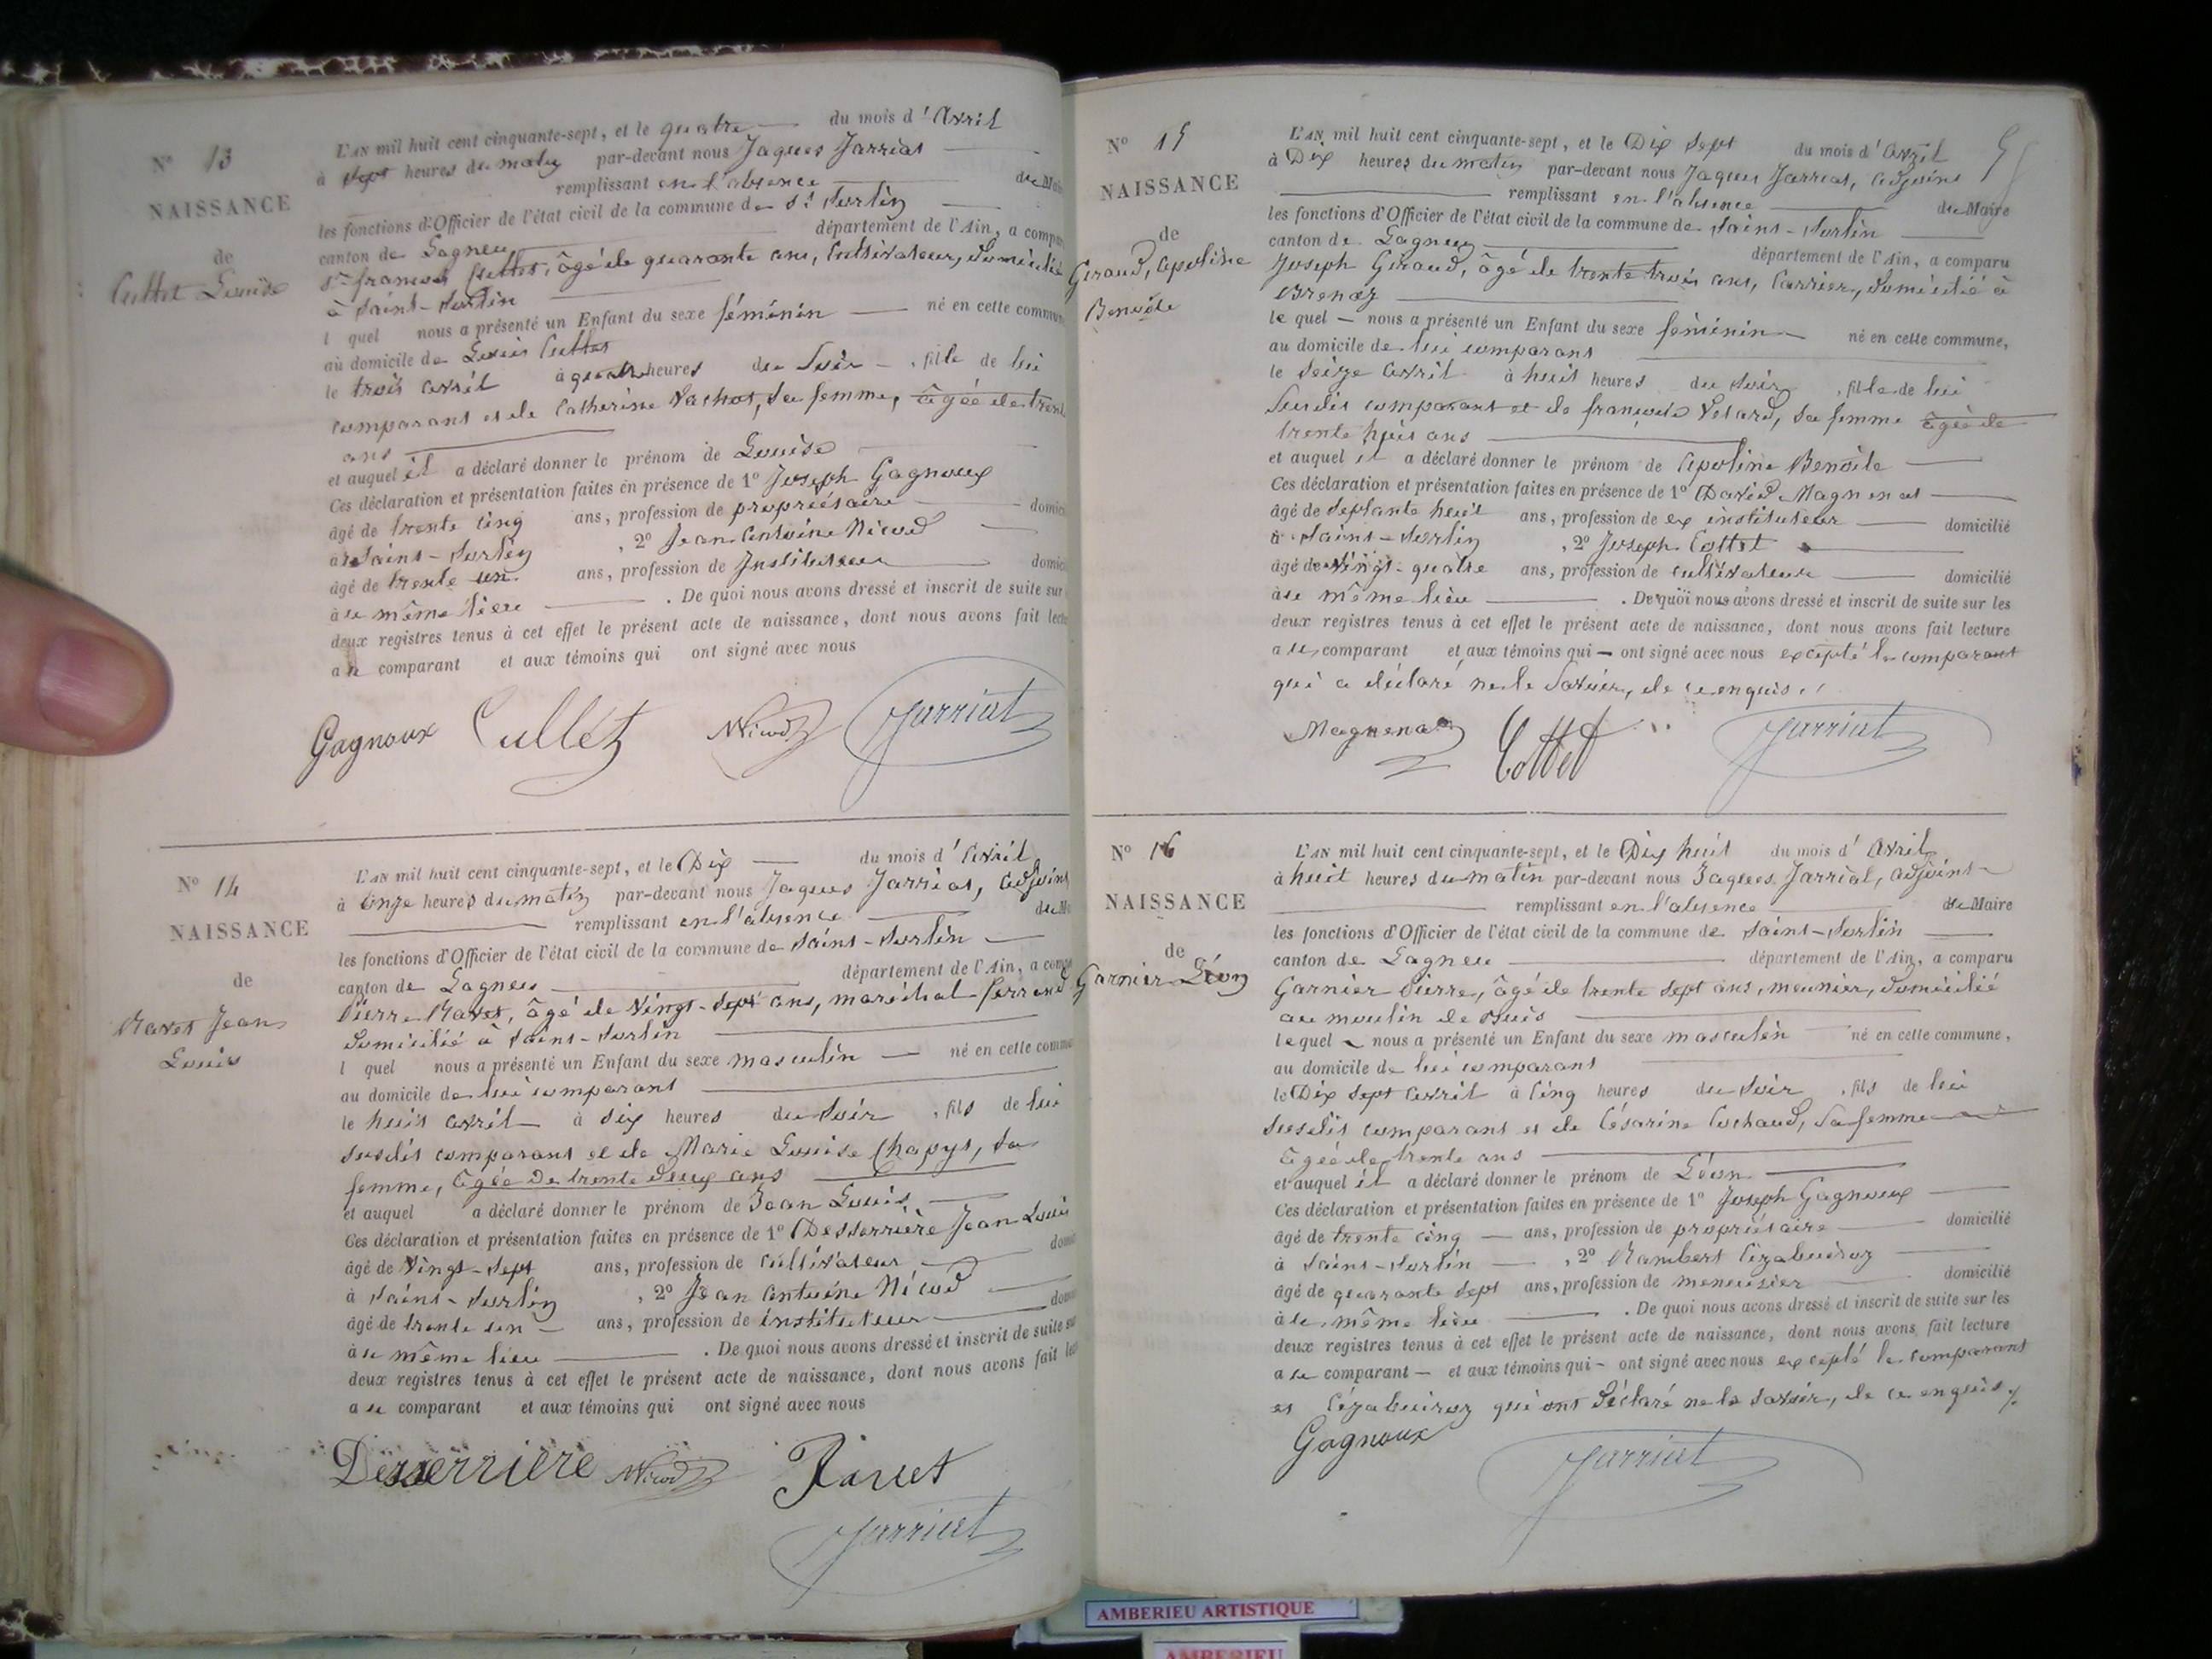 N° 13
NAISSANCE
de
Cullet Louise
L'AN mil huit cent cinquante-sept, et le quatre du mois d'Avril
à sept heures du matin par-devant nous Jaques Jarriat
remplissant en l'absence du Mai
les fonctions d'Officier de l'état civil de la commune de St Sorlin
canton de Lagneu département de l'Ain, a compa
Sr françois Cullet, âgé de quarante ans, Cultivateur, domicilié
à Saint-Sorlin
l quel nous a présenté un Enfant du sexe féminin né en cette commun
au domicile de Louis Cullet
le trois avril à quatre heures du Soir, fille de lui
comparant et de Catherine Vachot, sa femme, âgée de trente
ans
et auquel il a déclaré donner le prénom de Louise
Ces déclaration et présentation faites en présence de 1° Joseph Gagnoux
âgé de trente cinq ans, profession de propriétaire domici
à Saint-Sorlin, 2° Jean Antoine Nicod
âgé de trente un ans, profession de Instituteur domici
à u même lieu. De quoi nous avons dressé et inscrit de suite sur
deux registres tenus à cet effet le présent acte de naissance, dont nous avons fait lectu
au comparant et aux témoins qui ont signé avec nous
Gagnoux Cullet Nicod Jarriat
N° 14
NAISSANCE
de
Ravet Jean
Louis
L'AN mil huit cent cinquante-sept, et le Dix du mois d'Avril
à Onze heures du matin par-devant nous Jaques Jarriat, adjoint
remplissant en l'absence du M
les fonctions d'Officier de l'état civil de la commune de Saint-Sorlin
canton de Lagneu département de l'Ain, a comp
Pierre Ravet, âgé de Vingt-sept ans, maréchal ferrand
Domicilié à Saint-Sorlin
l quel nous a présenté un Enfant du sexe masculin né en cette commu
au domicile de lui comparant
le huit avril à six heures du Soir, fils de lui
susdit comparant et de Marie Louise Chapys, sa
femme, âgée De trente deux ans
et auquel a déclaré donner le prénom de Jean Louis
Ces déclaration et présentation faites en présence de 1° Desserrière Jean Louis
âgé de Vingt-sept ans, profession de cultivateur domi
à Saint-Sorlin, 2° Jean Antoine Nicod
âgé de trente un ans, profession de instituteur domi
à u même lieu. De quoi nous avons dressé et inscrit de suite su
deux registres tenus à cet effet le présent acte de naissance, dont nous avons fait lec
au comparant et aux témoins qui ont signé avec nous
Desserrière Nicod Ravet
Jarriat
N° 15
NAISSANCE
de
Giraud, Apoline
Benoîte
L'AN mil huit cent cinquante-sept, et le Dix sept du mois d'Avril
à Dix heures du matin par-devant nous Jaques Jarriat, adjoint
remplissant en l'absence du Maire
les fonctions d'Officier de l'état civil de la commune de Saint-Sorlin
canton de Lagneu département de l'Ain, a comparu
Joseph Giraud, âgé de trente trois ans, Carrier, domicilié à
Brenaz
lequel nous a présenté un Enfant du sexe féminin né en cette commune,
au domicile de lui comparant
le seize avril à huit heures du soir, fille de lui
susdit comparant et de françoise Velard, sa femme âgée de
trente huit ans
et auquel il a déclaré donner le prénom de Apoline Benoîte
Ces déclaration et présentation faites en présence de 1° David Magnenat
âgé de Septante huit ans, profession de ex instituteur domicilié
à Saint-Sorlin, 2° Joseph Cottet
âgé de Vingt-quatre ans, profession de cultivateur domicilié
à u même lieu. De quoi nous avons dressé et inscrit de suite sur les
deux registres tenus à cet effet le présent acte de naissance, dont nous avons fait lecture
au comparant et aux témoins qui ont signé avec nous excepté le comparant
qui a déclaré ne le savoir, de ce enquis
Magnenat Cottet Jarriat
N° 16
NAISSANCE
de
Garnier Léon
L'AN mil huit cent cinquante-sept, et le Dix huit du mois d'Avril
à huit heures du matin par-devant nous Jaques Jarriat, adjoint
remplissant en l'absence du Maire
les fonctions d'Officier de l'état civil de la commune de Saint-Sorlin
canton de Lagneu département de l'Ain, a comparu
Garnier Pierre, âgé de trente sept ans, meunier, domicilié
au moulin de Buis
lequel nous a présenté un Enfant du sexe masculin né en cette commune,
au domicile de lui comparant
le Dix sept avril à Cinq heures du Soir, fils de lui
susdit comparant et de Césarine Cochaud, sa femme
âgée de trente ans
et auquel il a déclaré donner le prénom de Léon
Ces déclaration et présentation faites en présence de 1° Joseph Gagnoux
âgé de trente cinq ans, profession de propriétaire domicilié
à Saint-Sorlin, 2° Rambert
âgé de quarante sept ans, profession de menuisier domicilié
à u même lieu. De quoi nous avons dressé et inscrit de suite sur les
deux registres tenus à cet effet le présent acte de naissance, dont nous avons fait lecture
au comparant et aux témoins qui ont signé avec nous excepté le comparant
et qui ont Déclaré ne le savoir, de ce enquis
Gagnoux Jarriat
AMBERIEU ARTISTIQUE
AMBERIEU